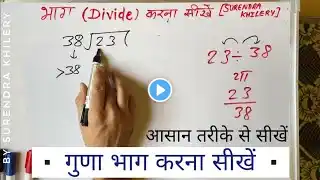 भाग (Divide) करना सीखें [SURENDRA KHILERY]
38√23(
↓
>38
23÷38
या
23
38
आसान तरीके से सीखें
▪ गुणा भाग करना सीखें ▪
BY SURENDRA KHILERY